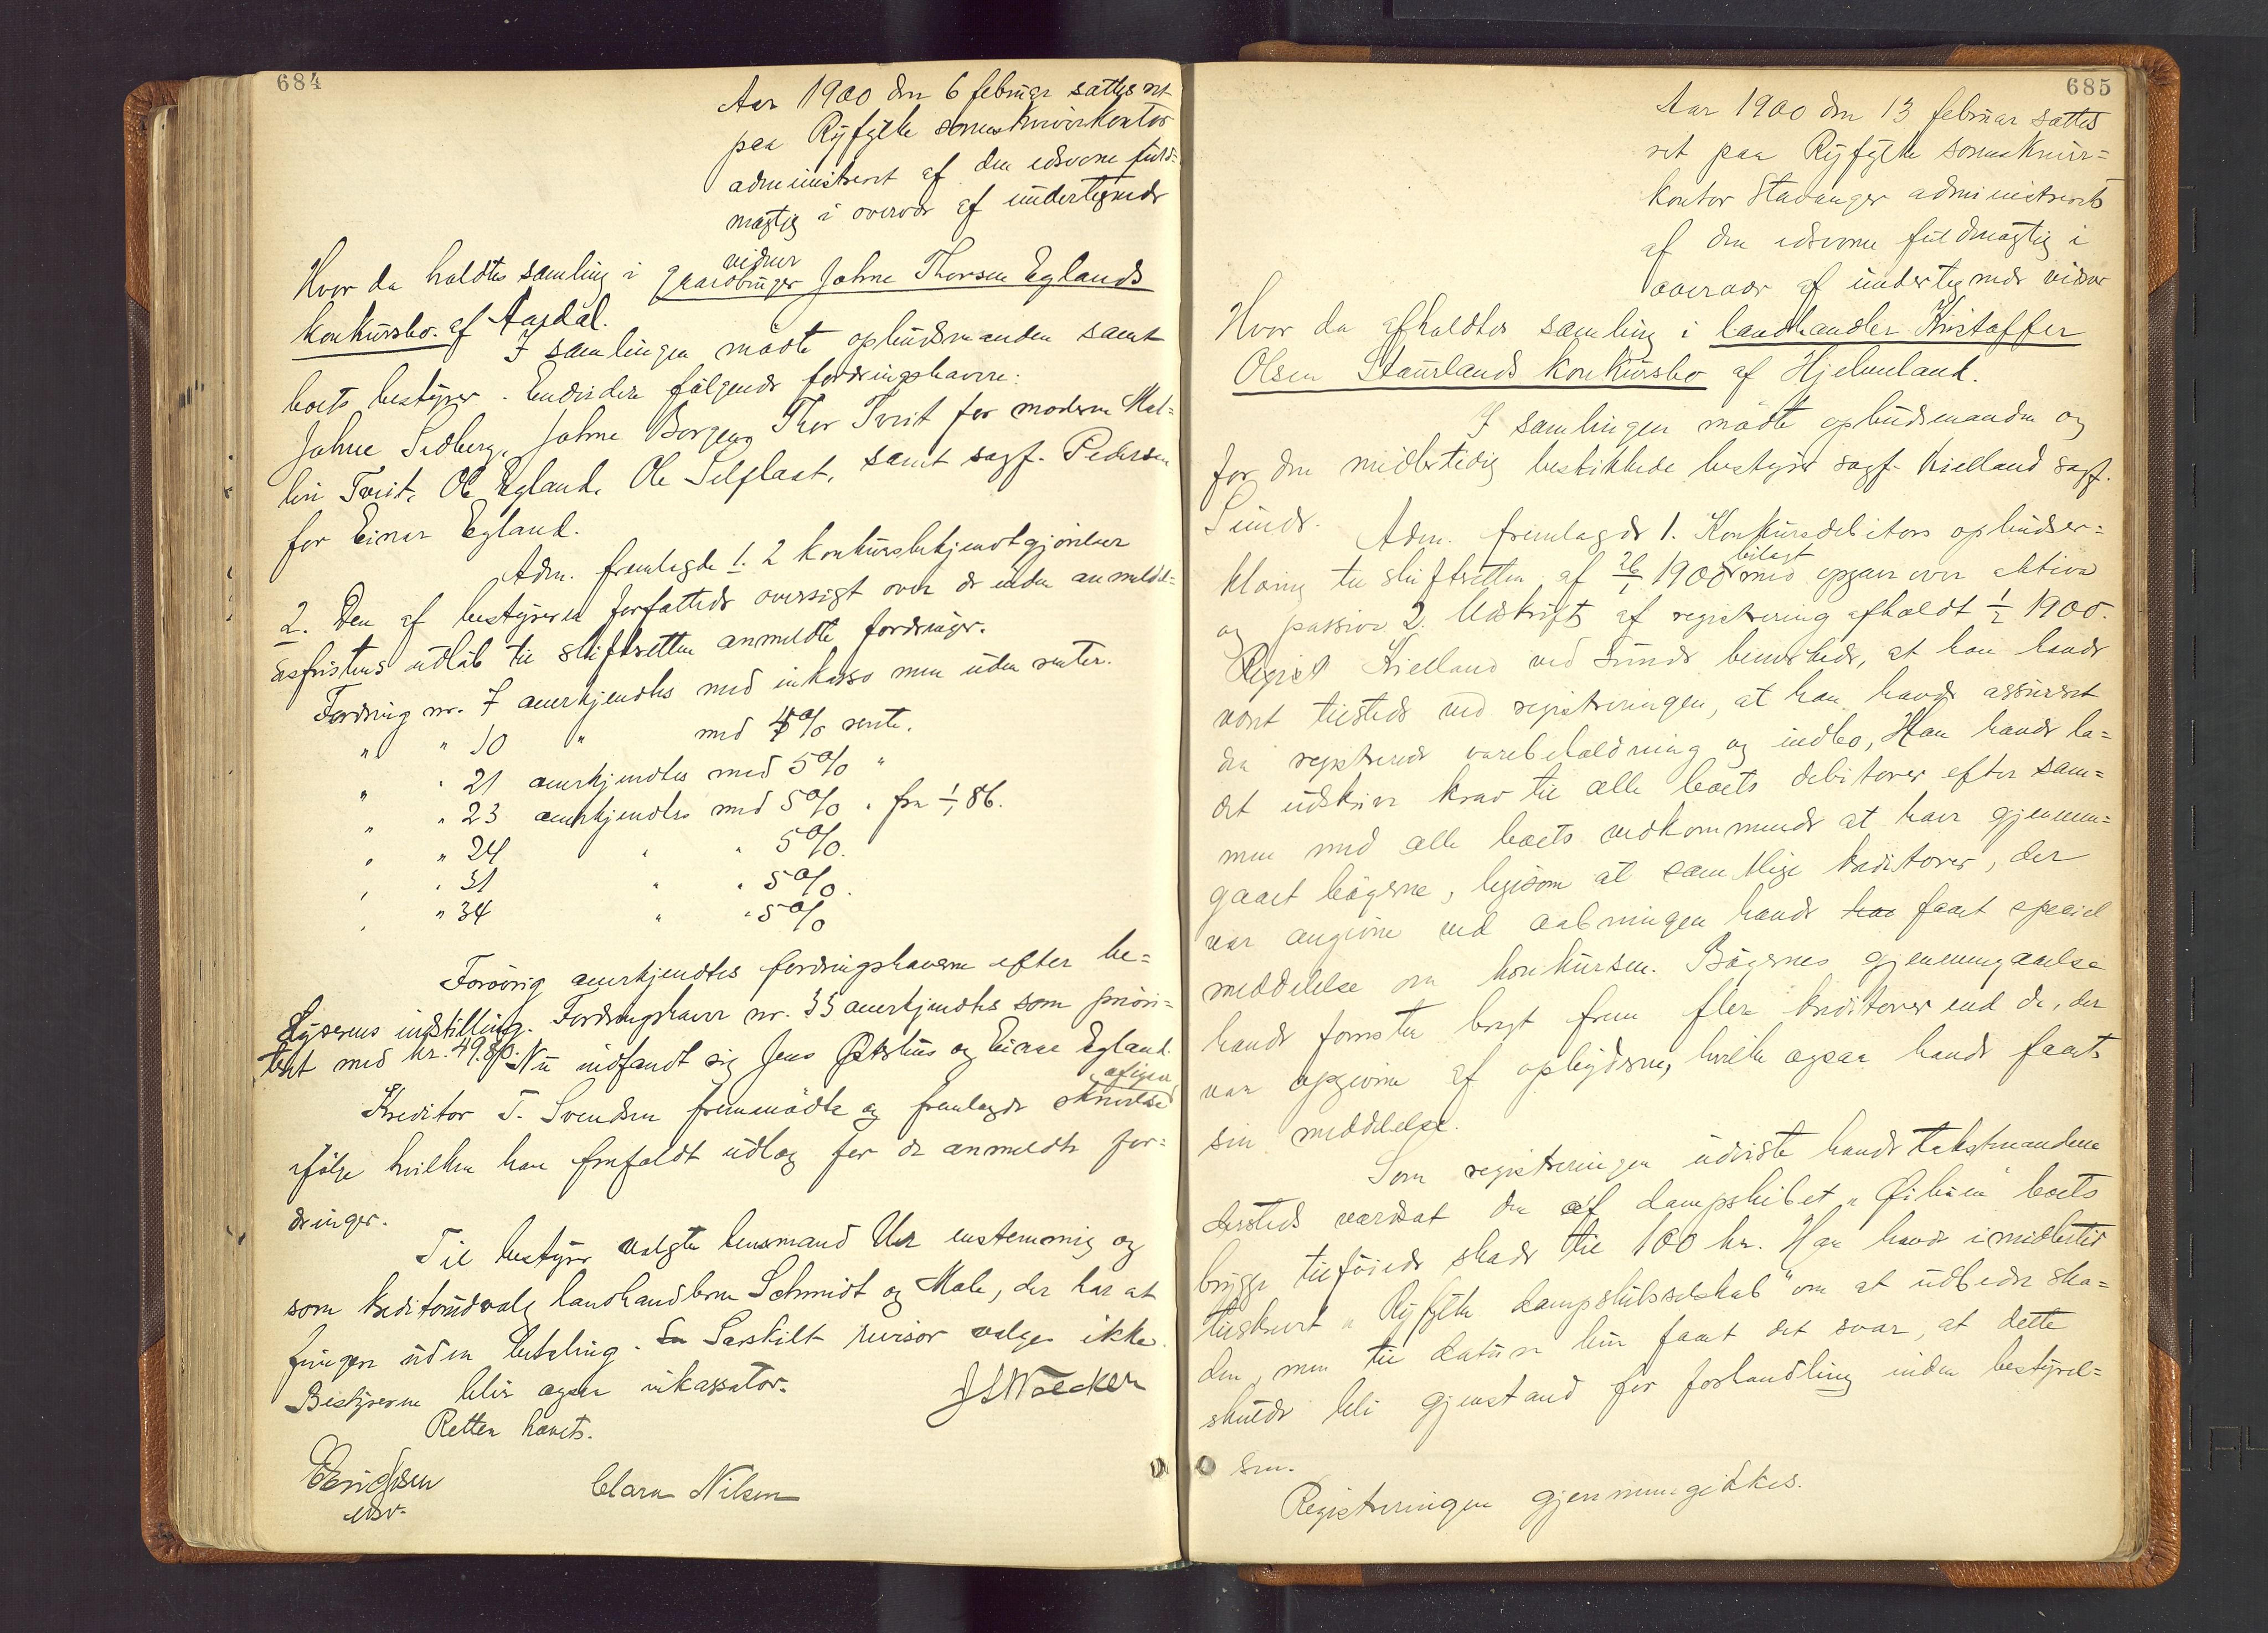 684
Aar 1900 den 6 februar sattes ret
paa Ryfylke sorenskriverkontor
administreret af den edsvorne fuld=
mægtig i overvær af undertegnede
vidner
Hvor da holdtes samling i gaardbruger Johne Thorsen Eglands
konkursbo af
I samlingen mødte opbudsmanden samt
boets bestyrer. Endvidere følgende fordringshavere:
Johne Sedberg, Johne Borgen, Thor Tveit for moderen Mal=
lin Tveit, Ole Egland, Ole Selflaat, samt sagf. Pedersen
for Einar Egland.
Adm. fremlagde 1. 2 konkursbekjendtgjørelser
2. Den af bestyreren forfattede oversigt over de inden anmeldel=
sesfristens udløb til skifteretten anmeldte fordringer.
Fordring nr. 7 anerkjendtes med inkasso men uden renter.
" " 10 " med 4% rente.
" " 21 anerkjendtes med 5% "
" " 23 anerkjendtes med 5% " fra 1/1 86.
" " 24 " " 5%.
" " 31 " " 5%.
" " 34 " " 5%
Forøvrig anerkjendtes fordringshaverne efter be=
styrerens indstilling. Fordringshaver nr. 35 anerkjendtes som priori=
teret med kr. 49.86. Nu indfandt sig Jens Østhus og Einar Egland.
Kreditor T. Svendsen fremmødte og fremlagde skrivelse
ifølge hvilken han frafaldt udlæg for de anmeldte for=
dringer.
Til bestyrer valgtes lensmand enstemmig og
som kreditorudvalg landhandlerne Schmidt og Male, der har at
fungere uden betaling. Særskilt revisor valges ikke.
Bestyreren blir ogsaa inkassator.
Retten hævet.
Clara Nilsen
685
Aar 1900 den 13 februar sattes
ret paa Ryfylke sorenskriver=
kontor Stavanger administreret
af den edsvorne fuldmægtig i
overvær af undertegnede vidner
Hvor da afholdtes samling i landhandler Kristoffer
Olsen Staurlands konkursbo af Hjelmeland.
I samlingen mødte opbudsmanden og
for den midlertidig beskikkede bestyrer sagf. Kielland sagf.
Sunde.
Adm. fremlagde 1. Konkursdebitors opbudser=
klæring til skifteretten af 26/1 1900 bilagt med opgave over aktiva
og passiva 2. Udskrift af registrering afholdt 1/2 1900.
Kielland ved Sunde bemerkede, at han havde
vært tilstede ved registreringen, at han havde assureret
den registrerede varebeholdning og indbo, Han havde la=
det udskrive krav til alle boets debitorer efter sam=
men med alle boets vedkommende at have gjennem=
gaaet bøgerne, ligesom at samtlige kreditorer, der
var angivne ved aabningen havde faaet speciel
meddelelse om konkursen. Bøgernes gjennemgaaelse
havde forresten bragt frem flere kreditorer end de, der
var opgivne af opbyderen, hvilke ogsaa havde faaet
sin meddelelse.
Som registreringen udviste havde takstmændene
dersteds værdsat den af dampskibet "Øibuen" boets
brygge tilføiede skade til 100 kr. Han havde imidlertid
tilskrevet "Ryfylke dampskibsselskab" om at udbedre ska=
den, men til datum kun faaet det svar, at dette
skulde bli gjenstand for forhandling inden bestyrel=
sen.
Registreringen gjennemgikkes.